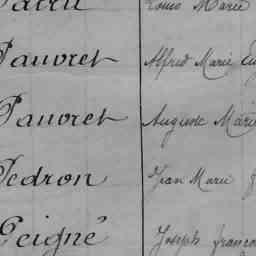 Louis Marie
Pauvret Alfred Marie
Pauvret Auguste Marie
Pedron Jean Marie
Peigné Joseph françois